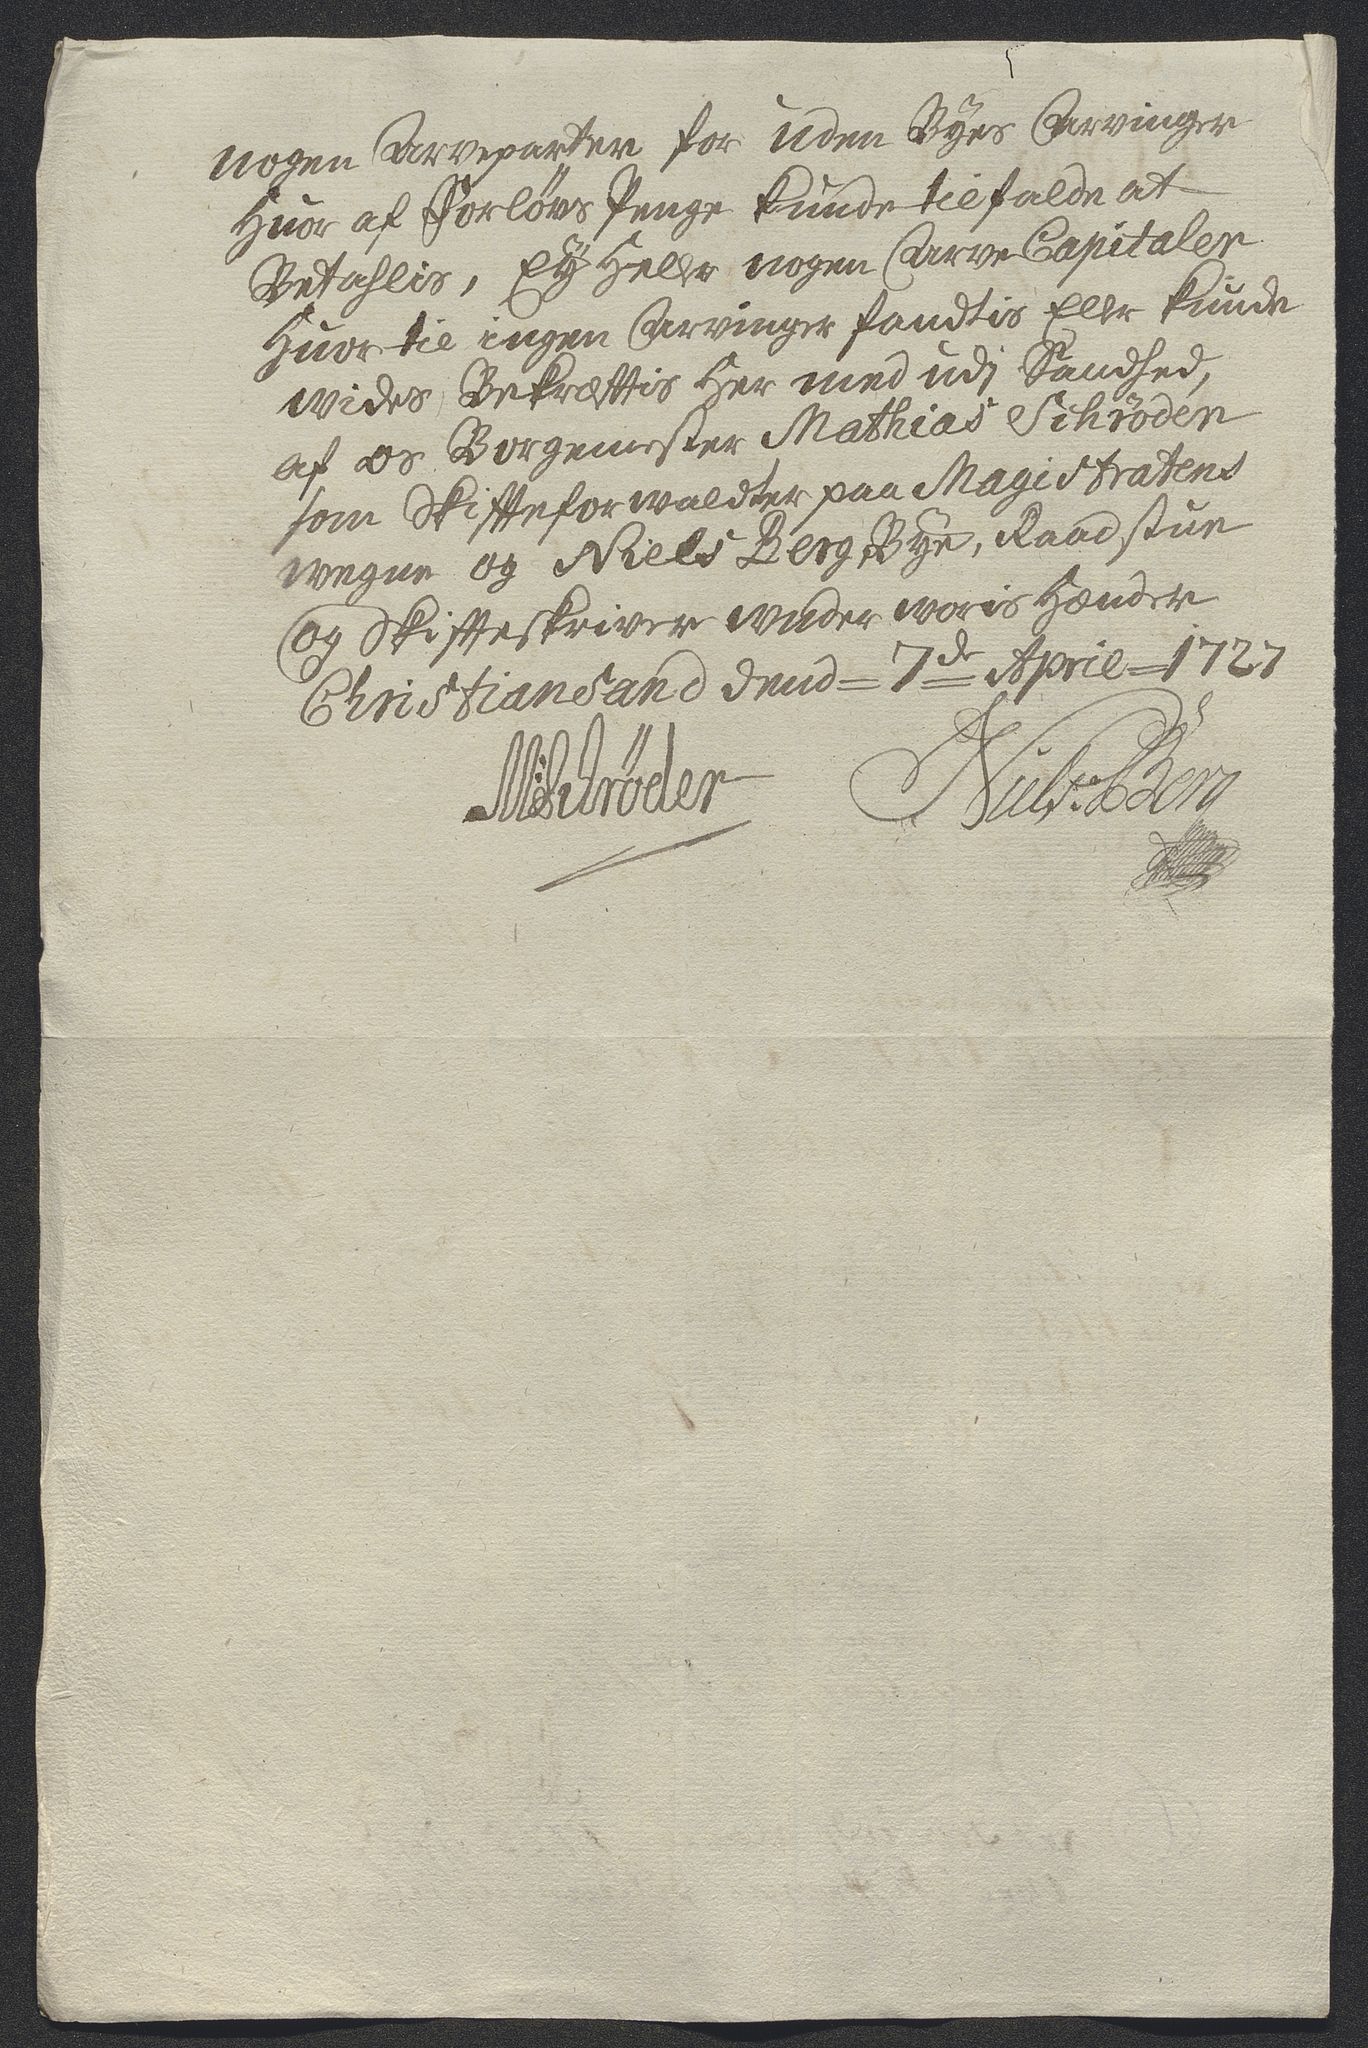 nogen Arveparter for uden Byes Arvinger
Huor af Forlovs Penge kunde tilfalde at
Betahlis, Ey Heller nogen Arve Capitaler
Huor til ingen Arvinger fandtis Eller kunde
wides, Bekræfftis Her med udj Sandhed,
af os Borgemester Mathias Schrøder
som Skiffteforwaldter paa Magistratens
wegne og Niels Berg Bye, Raadstue
og Skiffteskriver under woris Hænder
Christiansand dend = 7de April = 1727
MSchrøder
Niels Berg